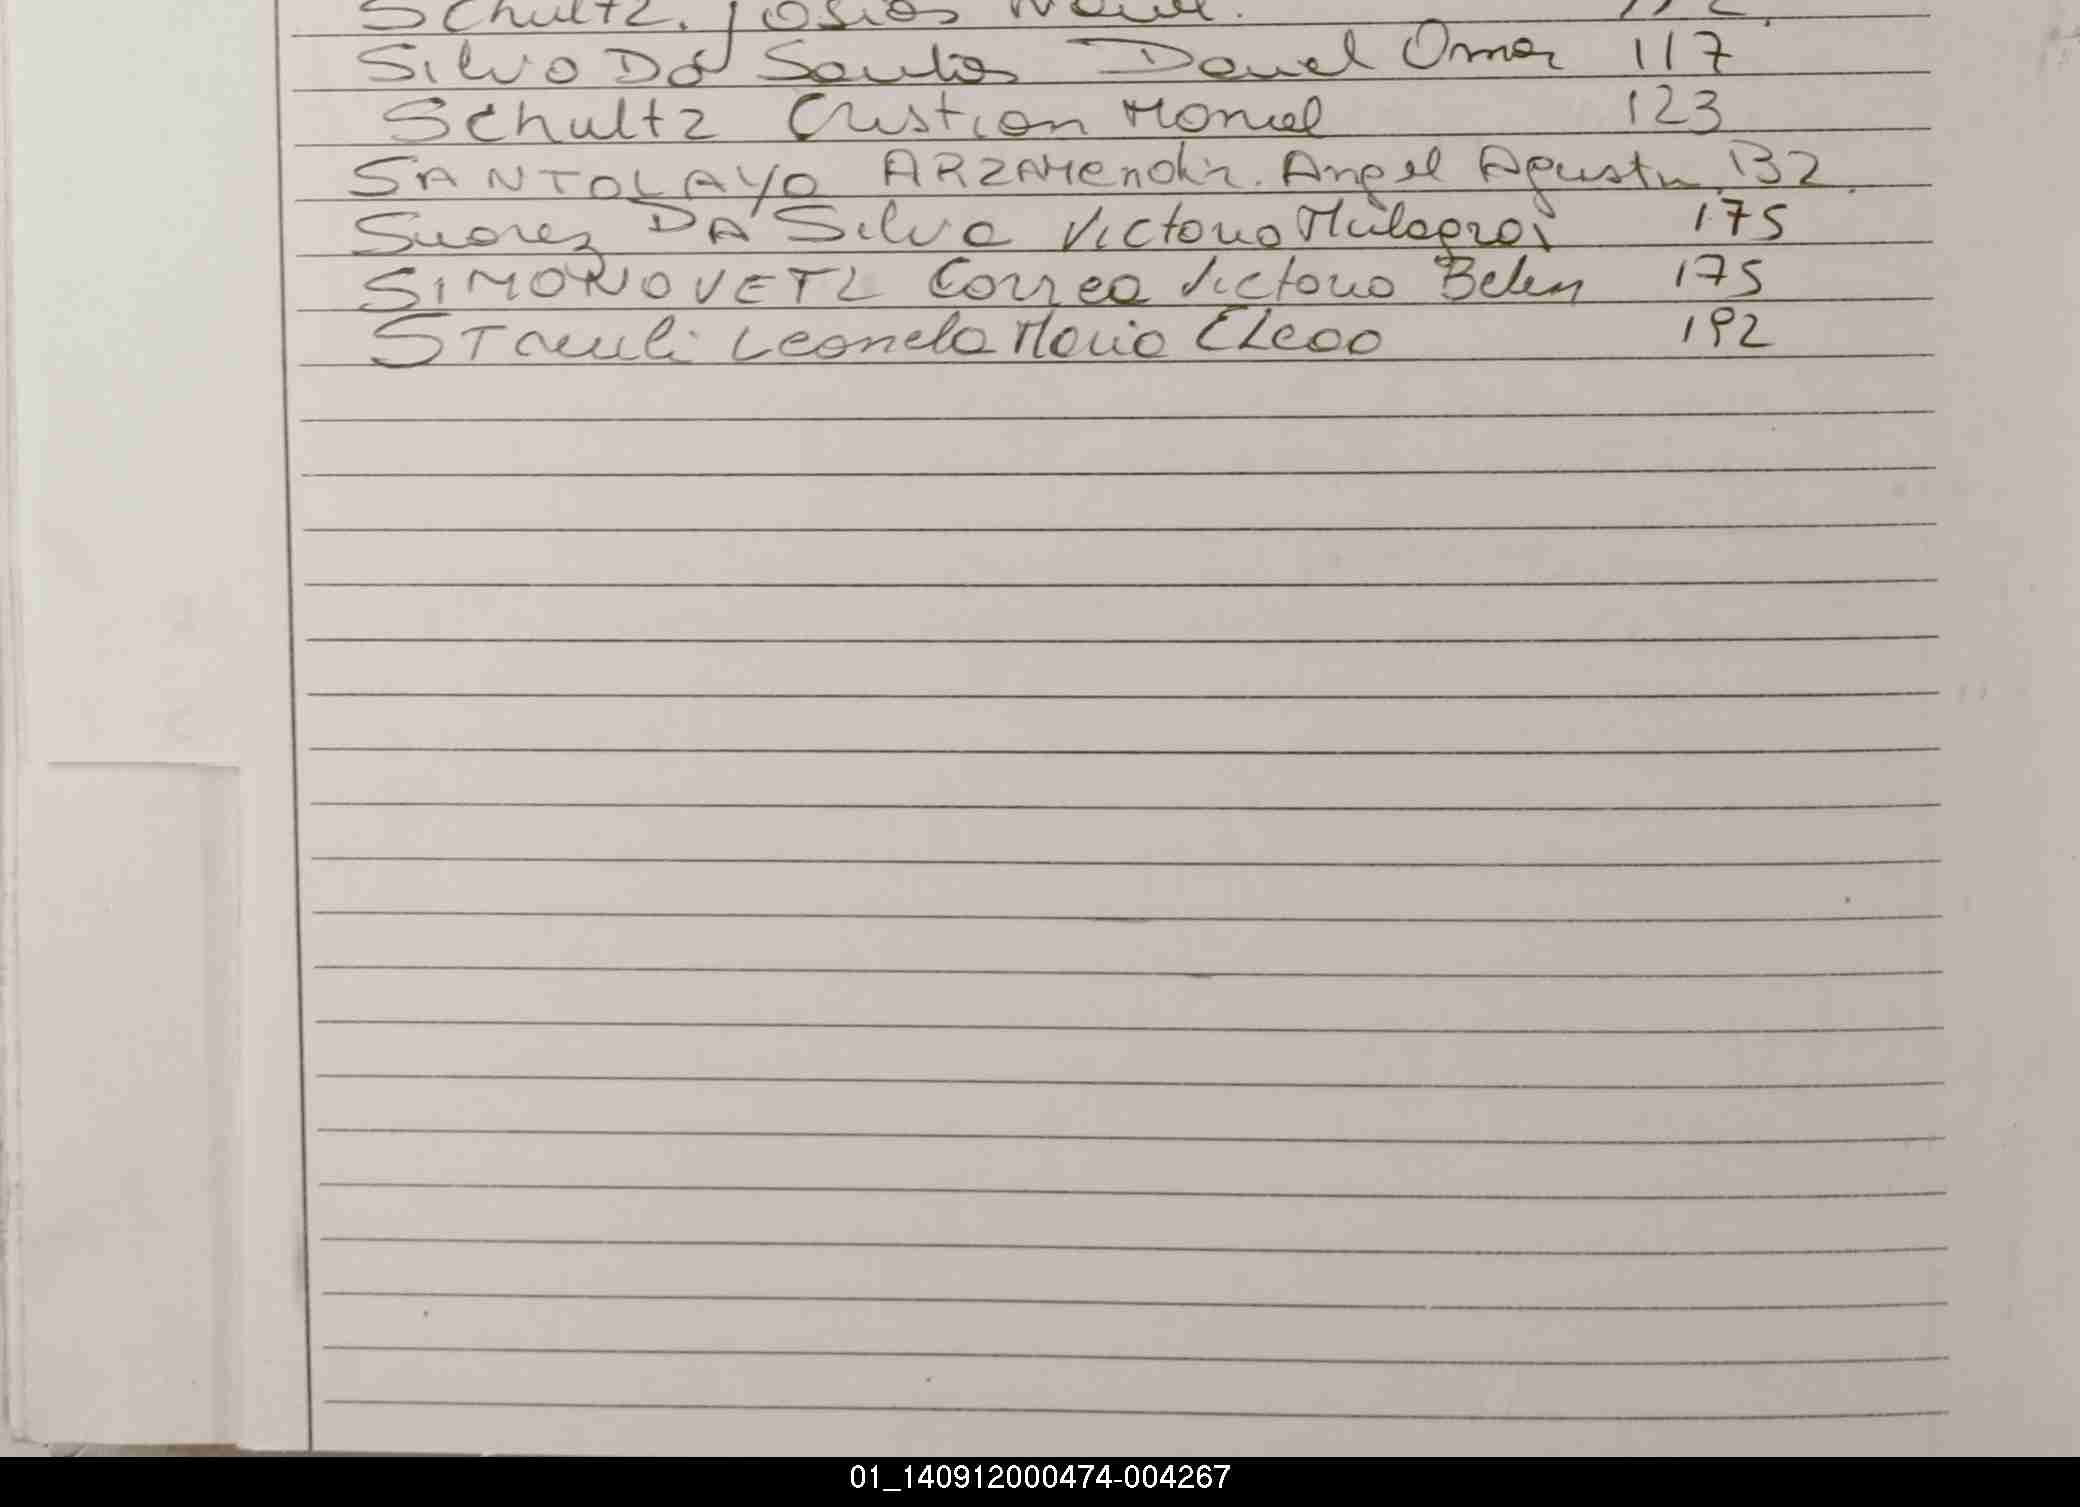 Schultz. Josias 112.
Silva Da Santos Daniel Omar 117
Schultz Cristian Manuel 123
SANTOLAYA ARZAMendia. Angel Agustin 132.
Suarez DA Silva Victoria Milagros 175
SIMONOVETZ Correa Victoria Belen 175
STaeuli Leonela Maria 192
01_140912000474-004267